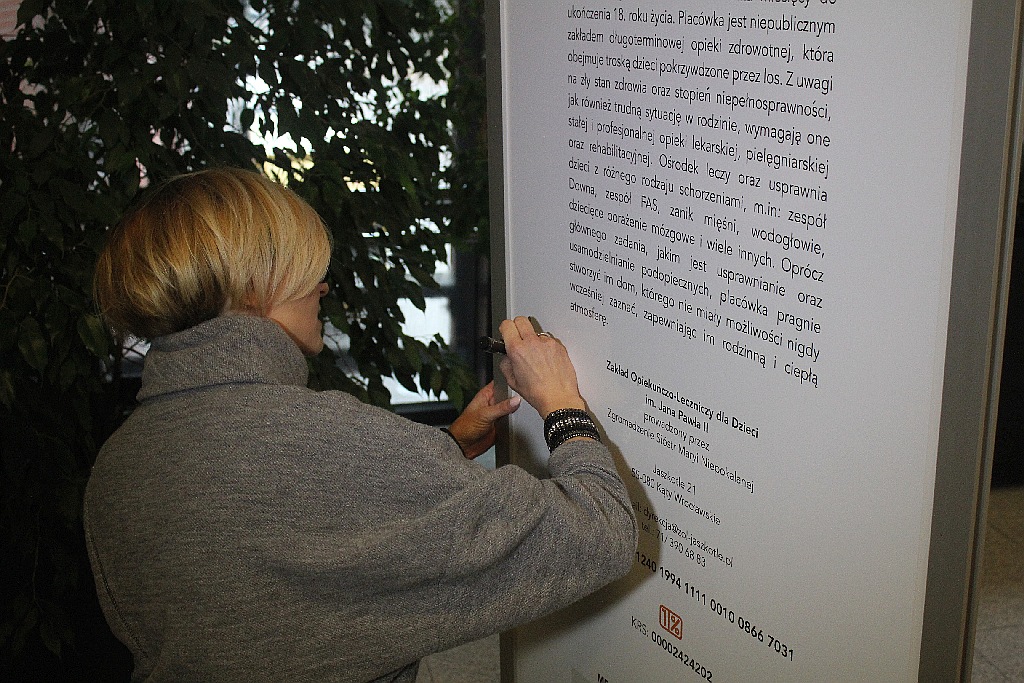 miesięcy do
ukończenia 18. roku życia. Placówka jest niepublicznym
zakładem długoterminowej opieki zdrowotnej, która
obejmuje troską dzieci pokrzywdzone przez los. Z uwagi
na zły stan zdrowia oraz stopień niepełnosprawności,
jak również trudną sytuację w rodzinie, wymagają one
stałej i profesjonalnej opieki lekarskiej, pielęgniarskiej
oraz rehabilitacyjnej. Ośrodek leczy oraz usprawnia
dzieci z różnego rodzaju schorzeniami, m.in: zespół
Downa, zespół FAS, zanik mięśni, wodogłowie,
dziecięce porażenie mózgowe i wiele innych. Oprócz
głównego zadania, jakim jest usprawnianie oraz
usamodzielnianie podopiecznych, placówka pragnie
stworzyć im dom, którego nie miały możliwości nigdy
wcześniej zaznać, zapewniając im rodzinną i ciepłą
atmosferę.
Zakład Opiekuńczo-Leczniczy dla Dzieci
im. Jana Pawła II
prowadzony przez
Zgromadzenie Sióstr Maryi Niepokalanej
Jaszkotle 21
55-080 Kąty Wrocławskie
dyrekcja@zol-jaszkotle.pl
tel. 71/ 390 68 83
1240 1994 1111 0010 0866 7031
1%
KRS: 00002424202